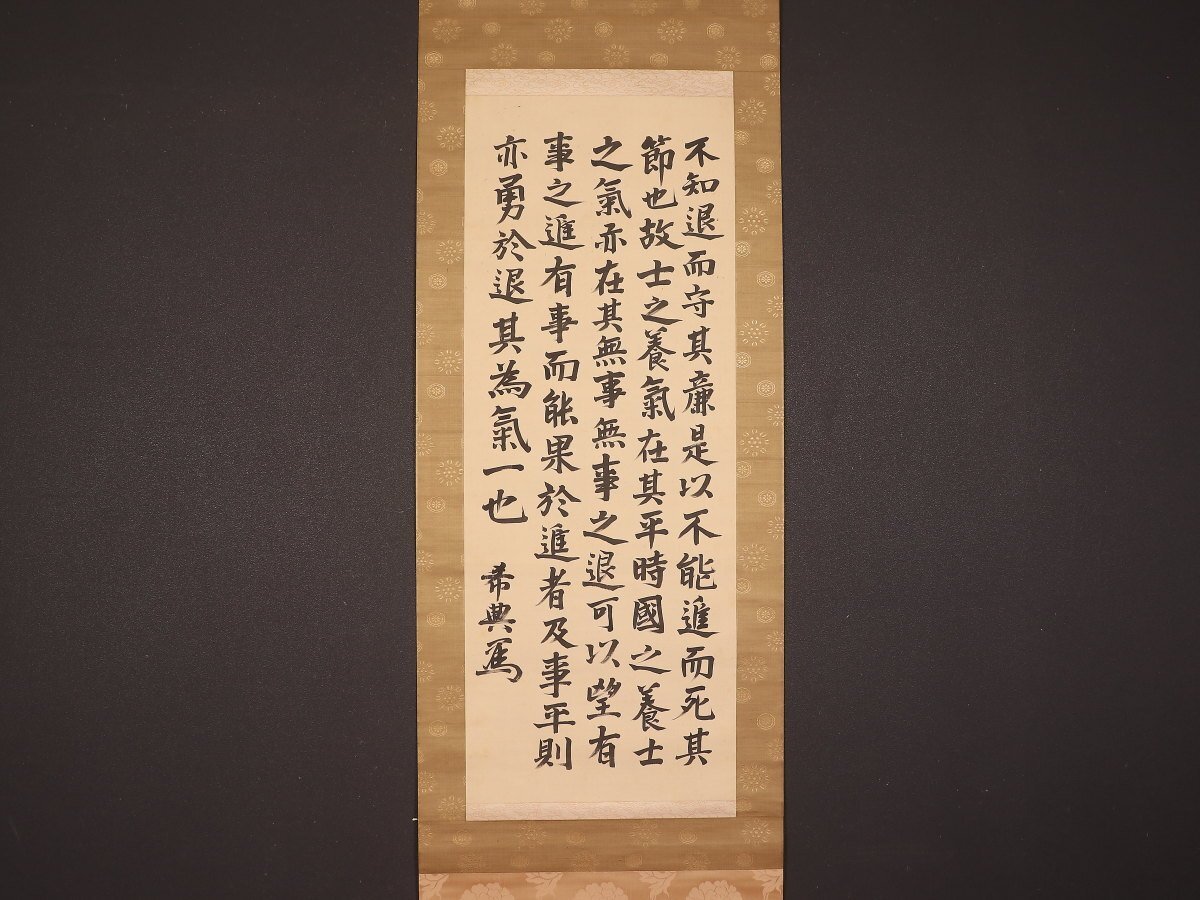 不知退而守其廉是以不能進而死其
節也故士之養氣在其平時國之養士
之氣亦在其無事無事之退可以望有
事之進有事而能果於進者及事平則
亦勇於退其為氣一也
希典寫